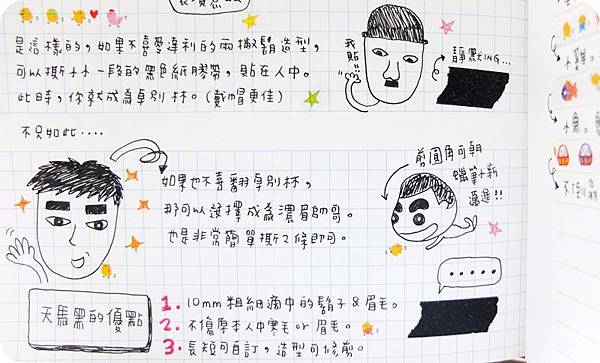 是這樣的，如果不喜愛達利的兩撇鬍造型，
可以撕小小一段的黑色紙膠帶，貼在人中。
此時，你就成為卓別林。(戴帽更佳)
我貼!!
靜默ING...
不只如此....
如果也不喜翻卓別林，
那可以選擇成為濃眉帥哥。
也是非常簡單撕2條即可。
剪圓角可朝
蠟筆小新
邁進!!
......
天馬黑的優點
1. 10mm粗細適中的鬍子&眉毛。
2. 不傷原本人中寒毛or眉毛。
3. 長短可自訂，造型可修剪。